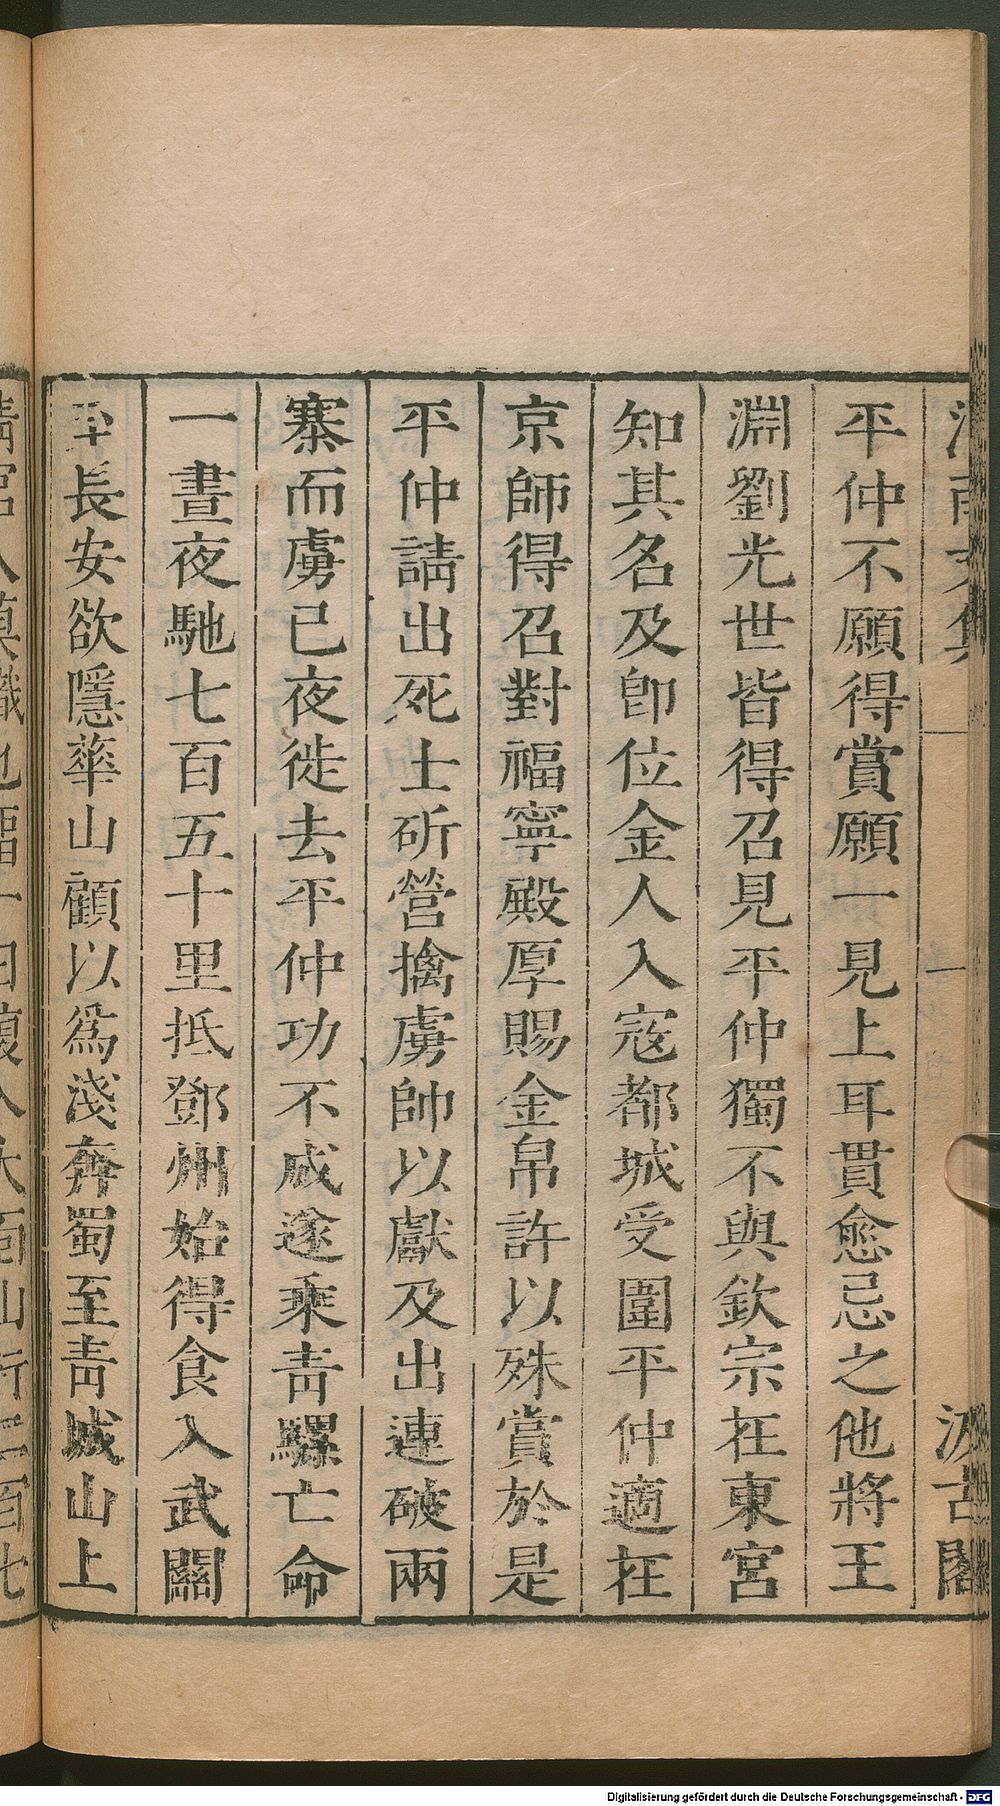 平仲不願得賞願一見上耳貫愈忌之他將王
淵劉光世皆得召見平仲獨不與欽宗在東宮
知其名及卽位金人入寇都城受圍平仲適在
京師得召對福寧殿厚賜金帛許以殊賞於是
平仲請出死士斫營擒虜帥以獻及出連破兩
寨而虜已夜徙去平仲功不成遂乘靑騾亡命
一晝夜馳七百五十里抵鄧州始得食入武關
至長安欲隱華山顧以爲淺奔蜀至靑城山上
Digitalisierung gefördert durch die Deutsche Forschungsgemeinschaft - DFG